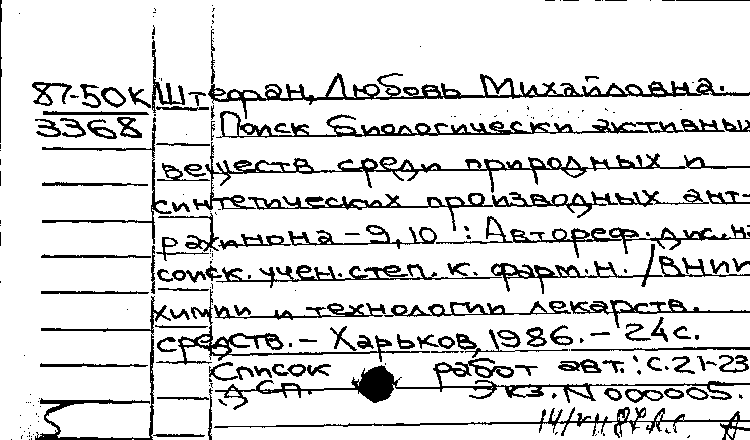 87-50К Штефан, Любовь Михайловна.
3368 Поиск биологически активны
веществ среди природных и
синтетических производных ант-
рахинона-9,10 : Автореф. дис. на
соиск. учен. степ. к. фарм. н. / ВНИИ
химии и технологии лекарств.
средств. - Харьков, 1986. - 24 с.
Список работ авт.: с. 21-23
ДСП. Экз. N 000005.